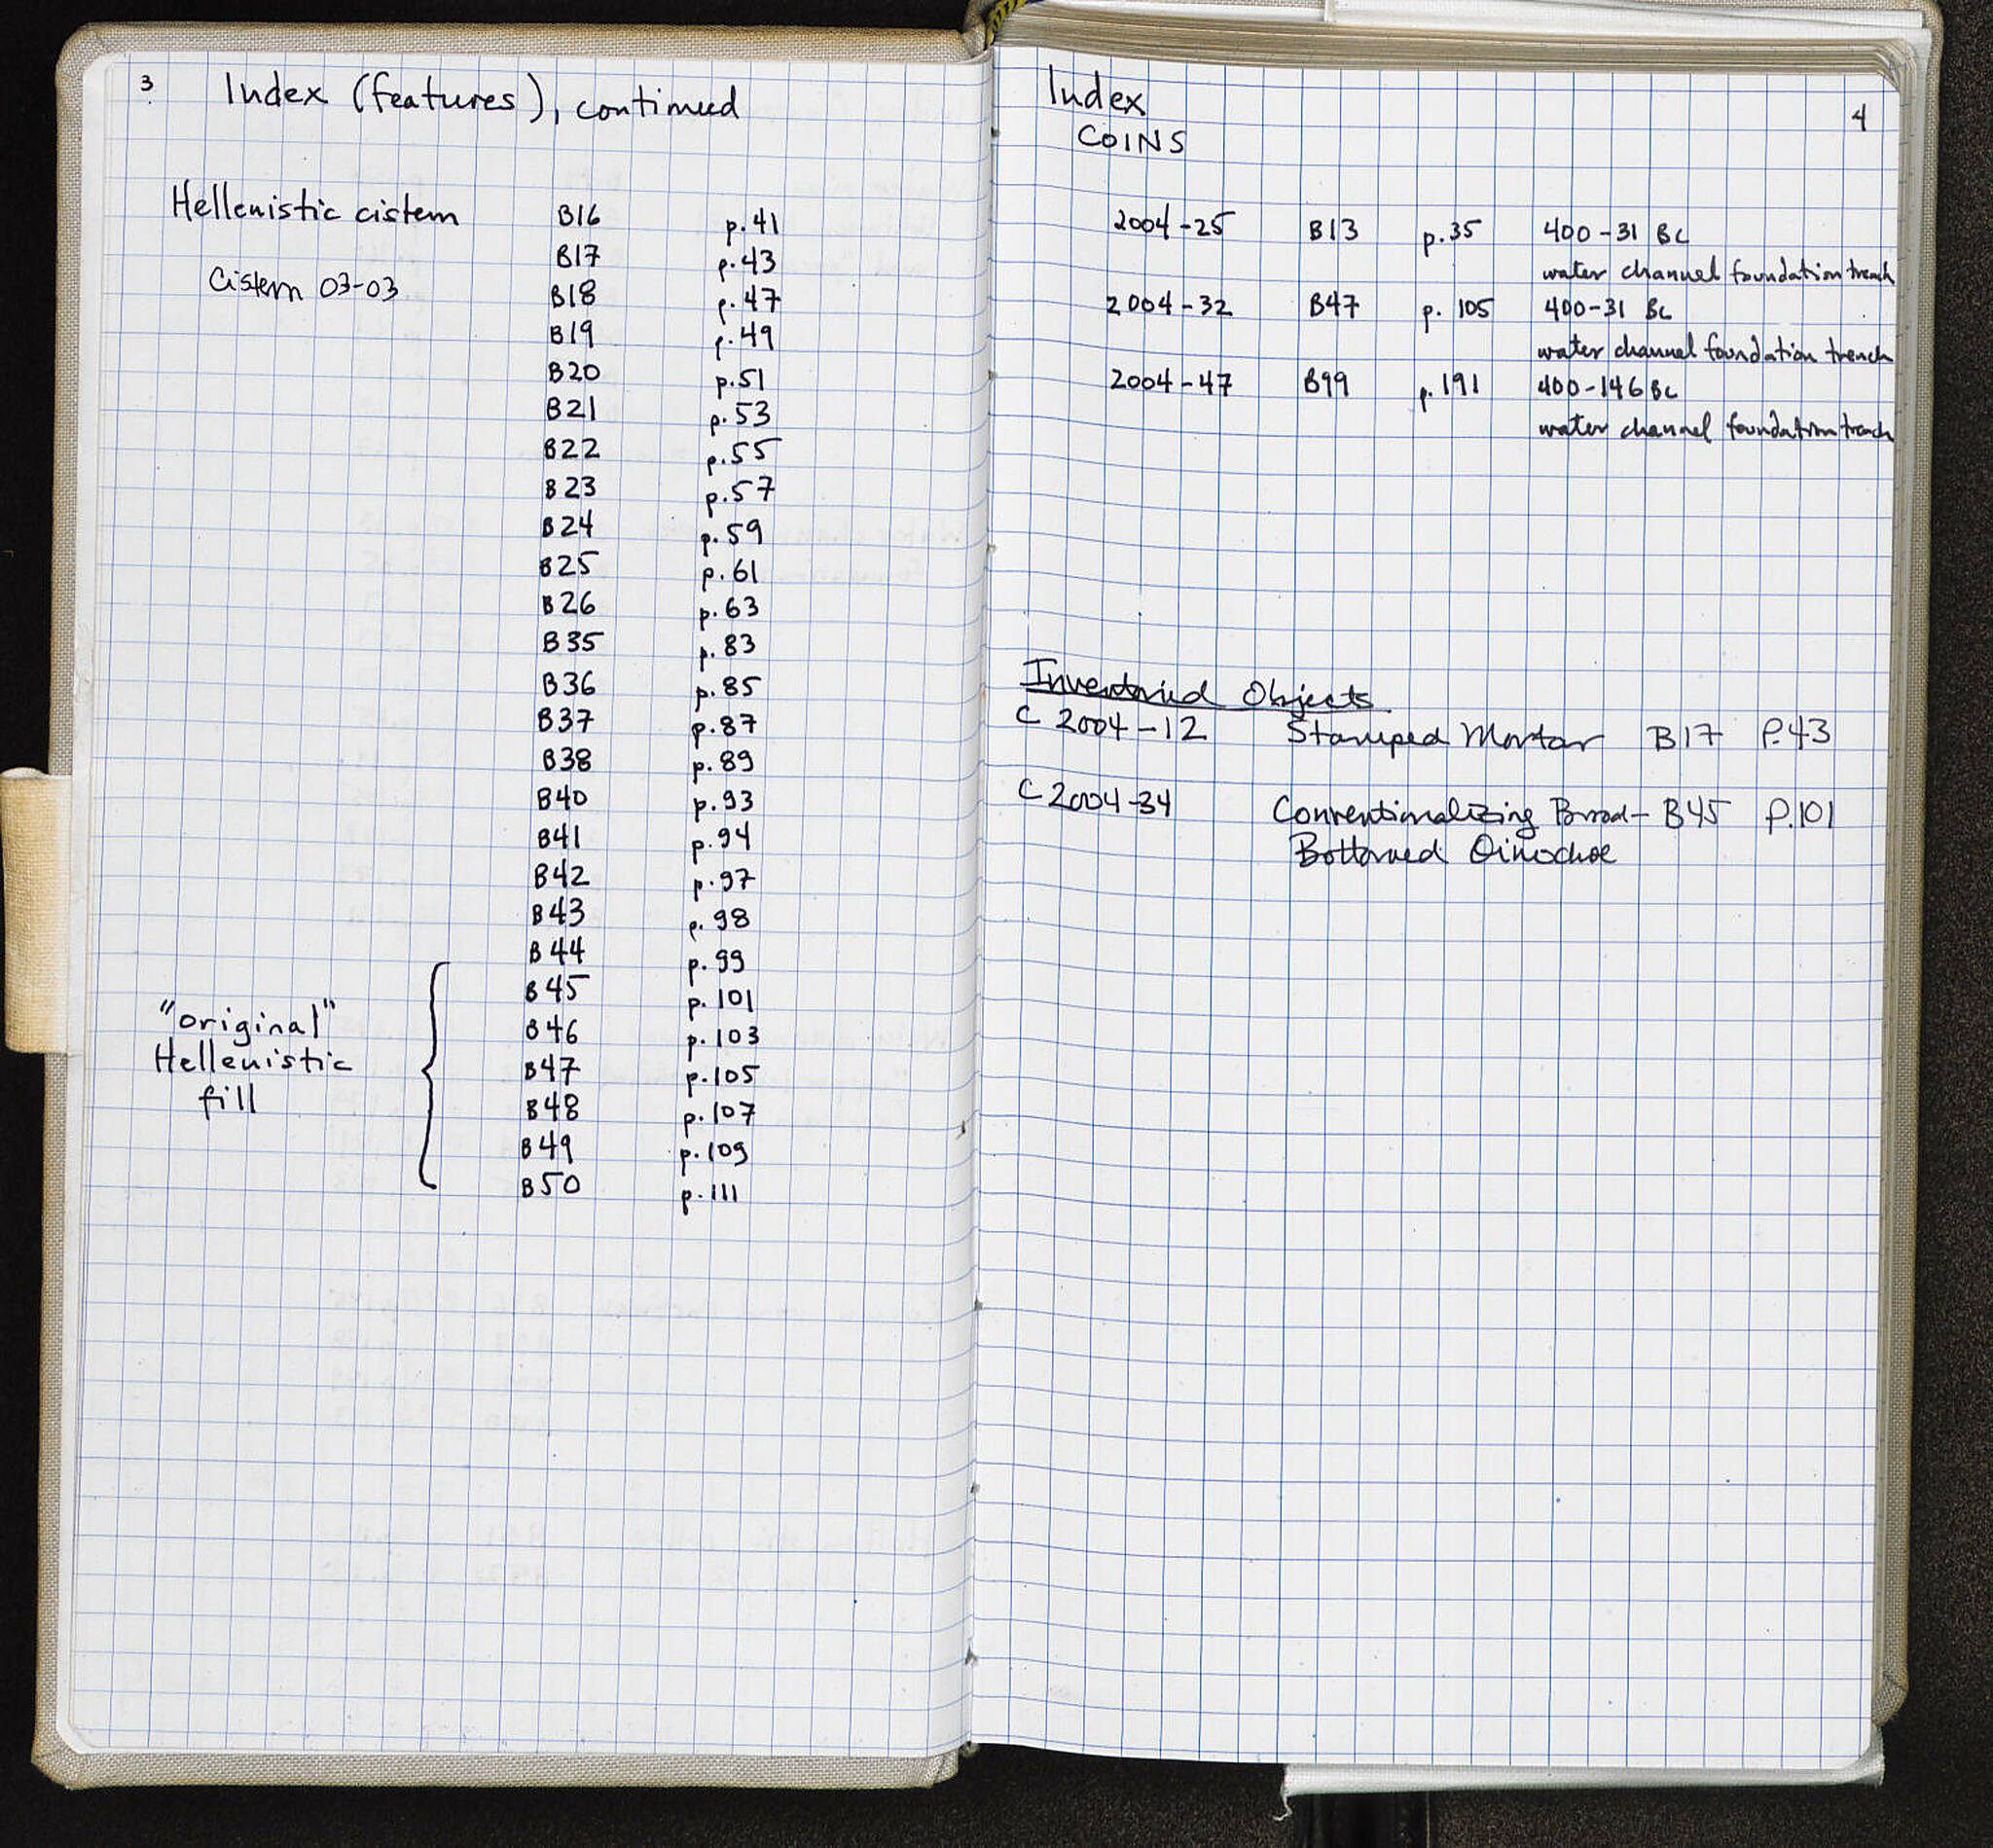 3
Index (features), continued
Hellenistic cistern B16 p. 41
B17 p. 43
Cistern 03-03 B18 p. 47
B19 p. 49
B20 p. 51
B21 p. 53
B22 p. 55
B23 p. 57
B24 p. 59
B25 p. 61
B26 p. 63
B35 p. 83
B36 p. 85
B37 p. 87
B38 p. 89
B40 p. 93
B41 p. 94
B42 p. 97
B43 p. 98
B44 p. 99
B45 p. 101
"original" B46 p. 103
Hellenistic B47 p. 105
fill B48 p. 107
B49 p. 109
B50 p. 111
Index
4
COINS
2004-25 B13 p. 35 400-31 BC
water channel foundation trench
2004-32 B47 p. 105 400-31 BC
water channel foundation trench
2004-47 B99 p. 191 400-146 BC
water channel foundation trench
Inventoried Objects
C 2004-12 Stamped Mortar B17 P. 43
C 2004-34 Conventionalizing Broad- B45 P. 101
Bottomed Oinochoe